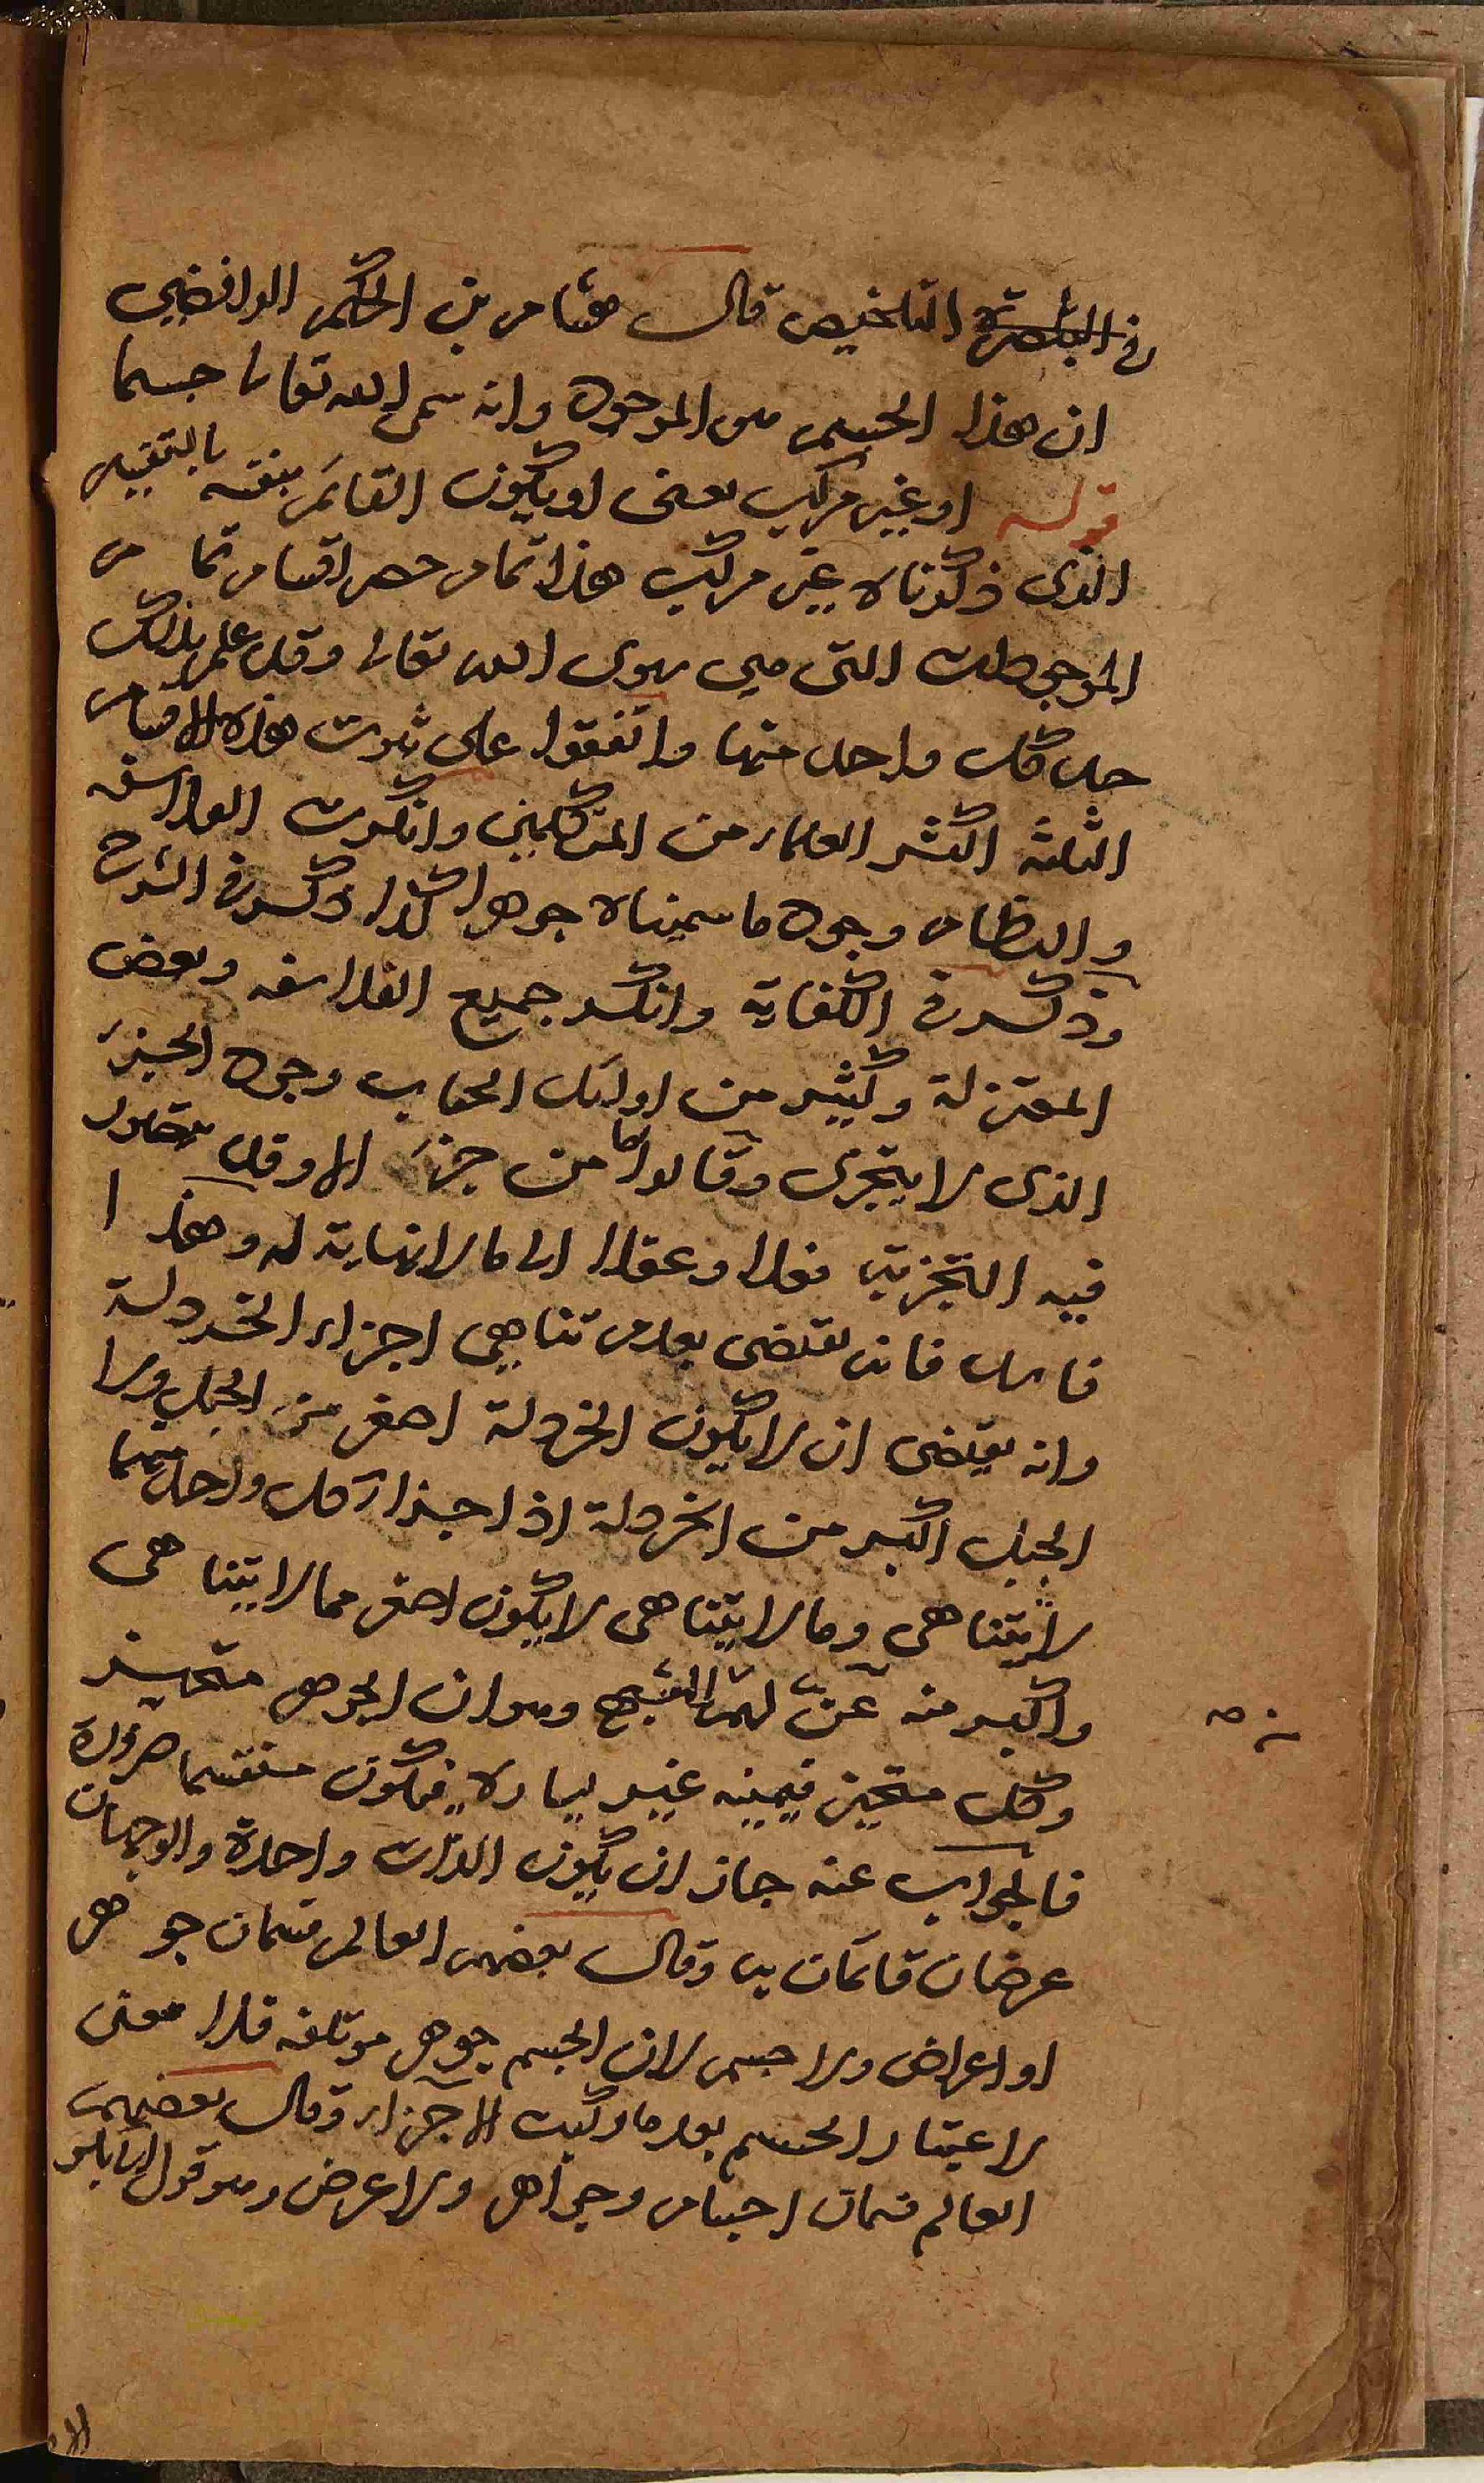 في التبصرة التلخيص قال هشام بن الحكم الرافضي
ان هذا الجسم هو الموجود وانه سمى الله تعالى جسما
قوله او غير مركب يعنى او يكون القائم بنفسه بالتفسير
الذى ذكرناه غير مركب هذا تمام حصر اقسام تمام
الموجودات التى هي سوى الله تعالى وقد علم بذلك
حد كل واحد منها واتفقوا على ثبوت هذه الاقسام
الثلثة اكثر العلماء من المتكلمين وانكرت الفلاسفه
والنظام وجود ما سميناه جوهرا كذا ذكر في الشرح
وذكر في الكفاية وانكر جميع الفلاسفه وبعض
المعتزلة وكثير من اوليك الحساب وجود الجزء
الذى لا يتجزى وقالوا ما من جزء الا وقد يتصور
فيه التجزية فعلا وعقلا الى ما لا نهاية له وهذا
فاسد فانه يقتضى بعدم تناهي اجزاء الخردلة
وانه يقتضى ان لا يكون الخردلة اصغر من الجبل ولا
الجبل اكبر من الخردلة اذ اجزاء كل واحد منهما
لا يتناهى وما لا يتناهى لا يكون اصغر مما لا يتناهى
واكبر منه عن لهم الشبهة وهو ان الجوهر متحيز
وكل متحيز فيمينه غير يساره فيكون منقسما ضرورة
فالجواب عنه جاز ان يكون الذات واحدة والوجهان
عرضان قائمان به وقال بعضهم العالم قسمان جوهر
او اعراض ولا جسم لان الجسم جوهر موتلفه فلا معنى
لاعتبار الجسم بعد ما ركبت الاجزاء وقال بعضهم
العالم قسمان اجسام وجواهر ولا عرض وهو قول